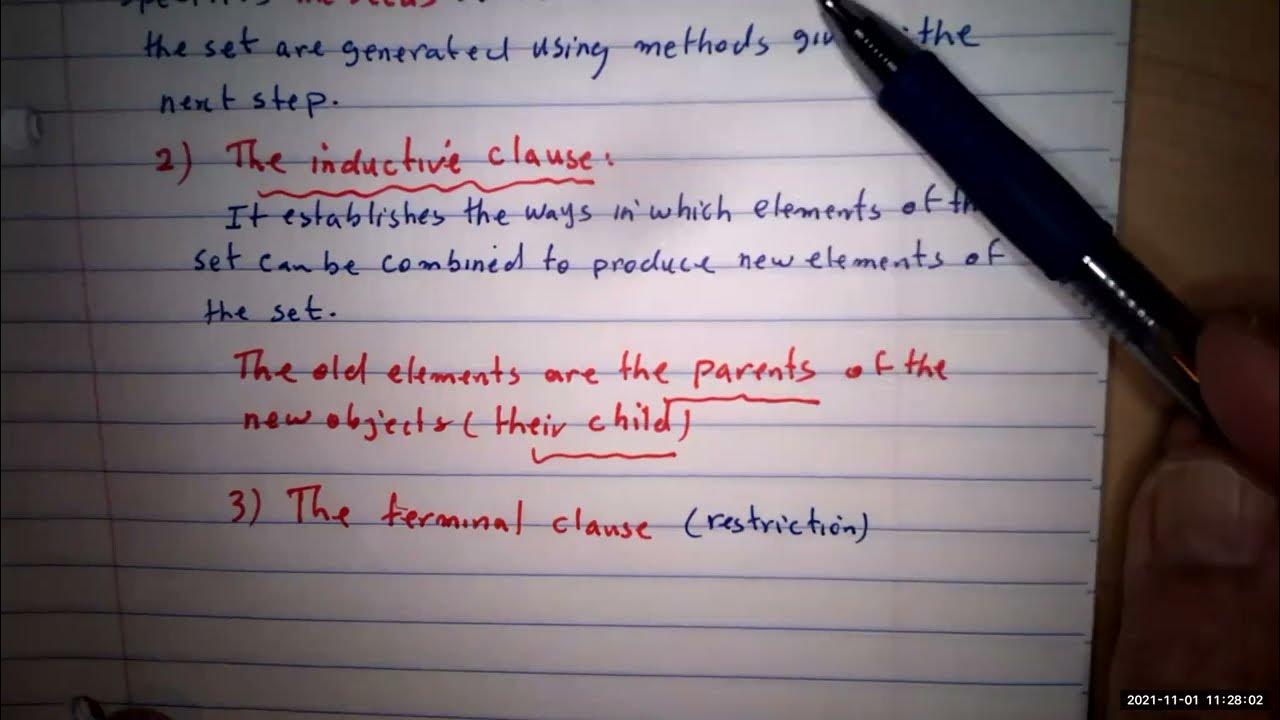 the set are generated using methods the
next step.
2) The inductive clause:
It establishes the ways in which elements of
set can be combined to produce new elements of
the set.
The old elements are the parents of the
new objects (their child)
3) The terminal clause (restriction)
2021-11-01 11:28:02